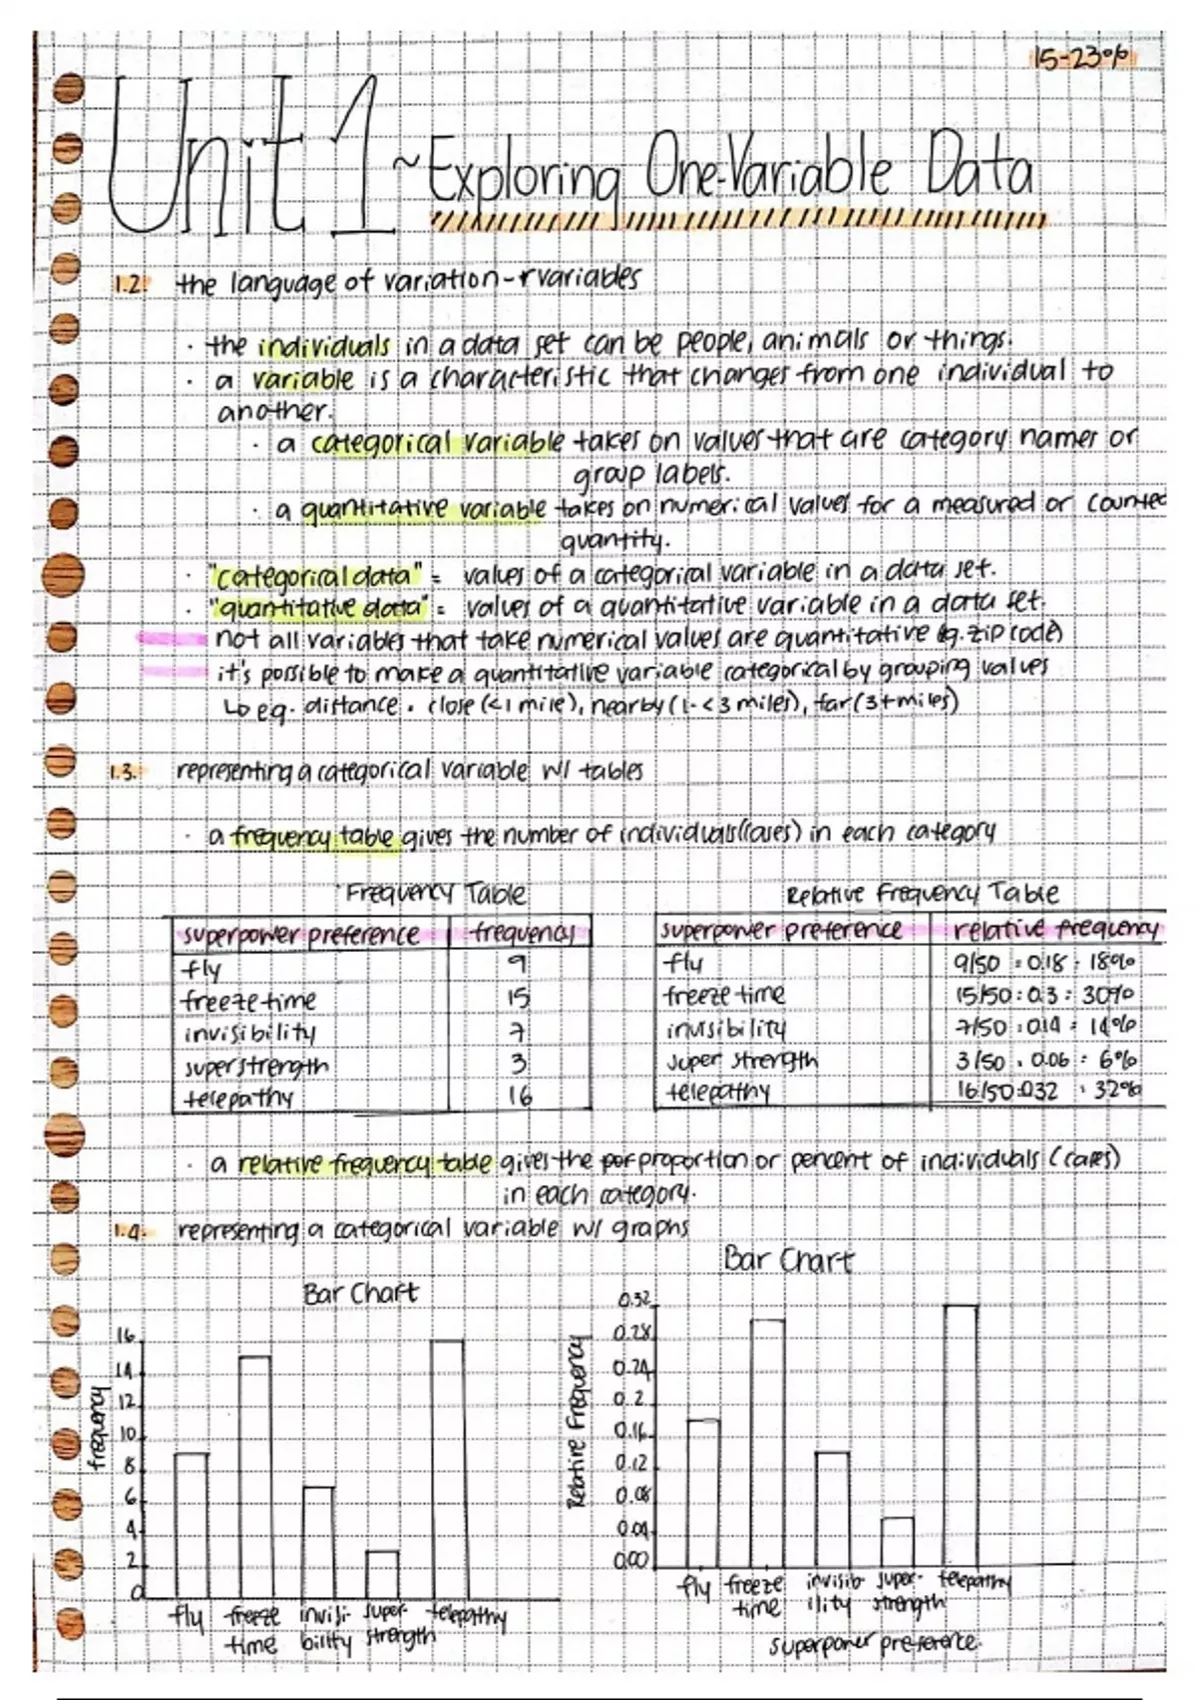 15-23%
Unit 1 ~ Exploring One-Variable Data
1.2. the language of variation - variables
· the individuals in a data set can be people, animals or things.
· a variable is a characteristic that changes from one individual to
another.
· a categorical variable takes on values that are category names or
group labels.
· a quantitative variable takes on numerical values for a measured or counted
quantity.
· "categorical data" = values of a categorical variable in a data set.
· "quantitative data" = values of a quantitative variable in a data set.
not all variables that take numerical values are quantitative eg. zip code)
it's possible to make a quantitative variable categorical by grouping values
↳ eg. distance. close (<1 mile), nearby (1-<3 miles), far (3+ miles)
1.3. representing a categorical variable w/ tables
· a frequency table gives the number of individuals (cases) in each category
Frequency Table
superpower preference frequency
fly 9
freeze time 15
invisibility 7
superstrength 3
telepathy 16
Relative Frequency Table
superpower preference relative frequency
fly 9/50 = 0.18 = 18%
freeze time 15/50 = 0.3 = 30%
invisibility 7/50 = 0.14 = 14%
super strength 3/50 = 0.06 = 6%
telepathy 16/50 = 032 = 32%
· a relative frequency table gives the por proportion or percent of individuals (cases)
in each category.
1.4. representing a categorical variable w/ graphs
Bar Chart
frequency
16
14
12
10
8
6
4
2
0
fly freeze invisi- super- telepathy
time bility strength
Bar Chart
Relative Frequency
0.32
0.28
0.24
0.2
0.16
0.12
0.08
0.04
0.00
fly freeze invisib- super- telepathy
time ility strength
superpower preference.